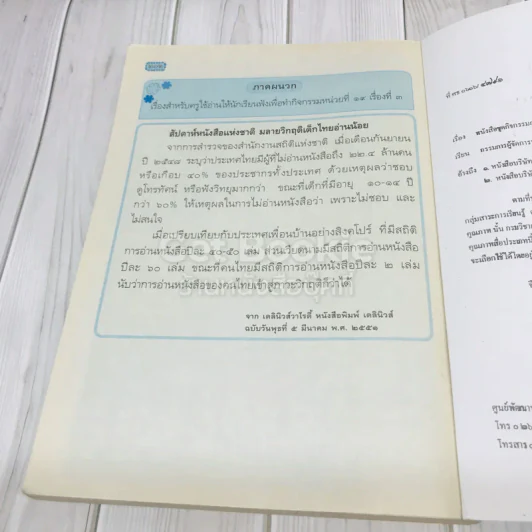 ภาคผนวก
เรื่องสำหรับครูใช้อ่านให้นักเรียนฟังเพื่อทำกิจกรรมหน่วยที่ ๑๙ เรื่องที่ ๓
สัปดาห์หนังสือแห่งชาติ มลายวิกฤติเด็กไทยอ่านน้อย
จากการสำรวจของสำนักงานสถิติแห่งชาติ เมื่อเดือนกันยายน
ปี ๒๕๔๘ ระบุว่าประเทศไทยมีผู้ที่ไม่อ่านหนังสือถึง ๒๒.๔ ล้านคน
หรือเกือบ ๔๐% ของประชากรทั้งประเทศ ด้วยเหตุผลว่าชอบ
ดูโทรทัศน์ หรือฟังวิทยุมากกว่า ขณะที่เด็กที่มีอายุ ๑๐-๑๔ ปี
กว่า ๖๐% ให้เหตุผลในการไม่อ่านหนังสือว่า เพราะไม่ชอบ และ
ไม่สนใจ
เมื่อเปรียบเทียบกับประเทศเพื่อนบ้านอย่างสิงคโปร์ ที่มีสถิติ
การอ่านหนังสือปีละ ๔๐-๕๐ เล่ม ส่วนเวียดนามมีสถิติการอ่านหนังสือ
ปีละ ๖๐ เล่ม ขณะที่คนไทยมีสถิติการอ่านหนังสือปีละ ๒ เล่ม
นับว่าการอ่านหนังสือของคนไทยเข้าสู่ภาวะวิกฤติก็ว่าได้
จาก เดลินิวส์วาไรตี้ หนังสือพิมพ์ เดลินิวส์
ฉบับวันพุธที่ ๕ มีนาคม พ.ศ. ๒๕๕๑
ร้านหนังสือคุณศรี
ที่ ศธ
เรื่อง หนังสือชุดกิจกรรม
เรียน กรรมการผู้จัดการ
อ้างถึง ๑. หนังสือบริษัท
๒. หนังสือบริษัท
ตามที่
กลุ่มสาระการเรียนรู้
คุณภาพ นั้น กรมวิชา
คุณภาพสื่อประเภท
จะเลือกใช้ได้โดย
ศูนย์พัฒนา
โทร ๐
โทรสาร